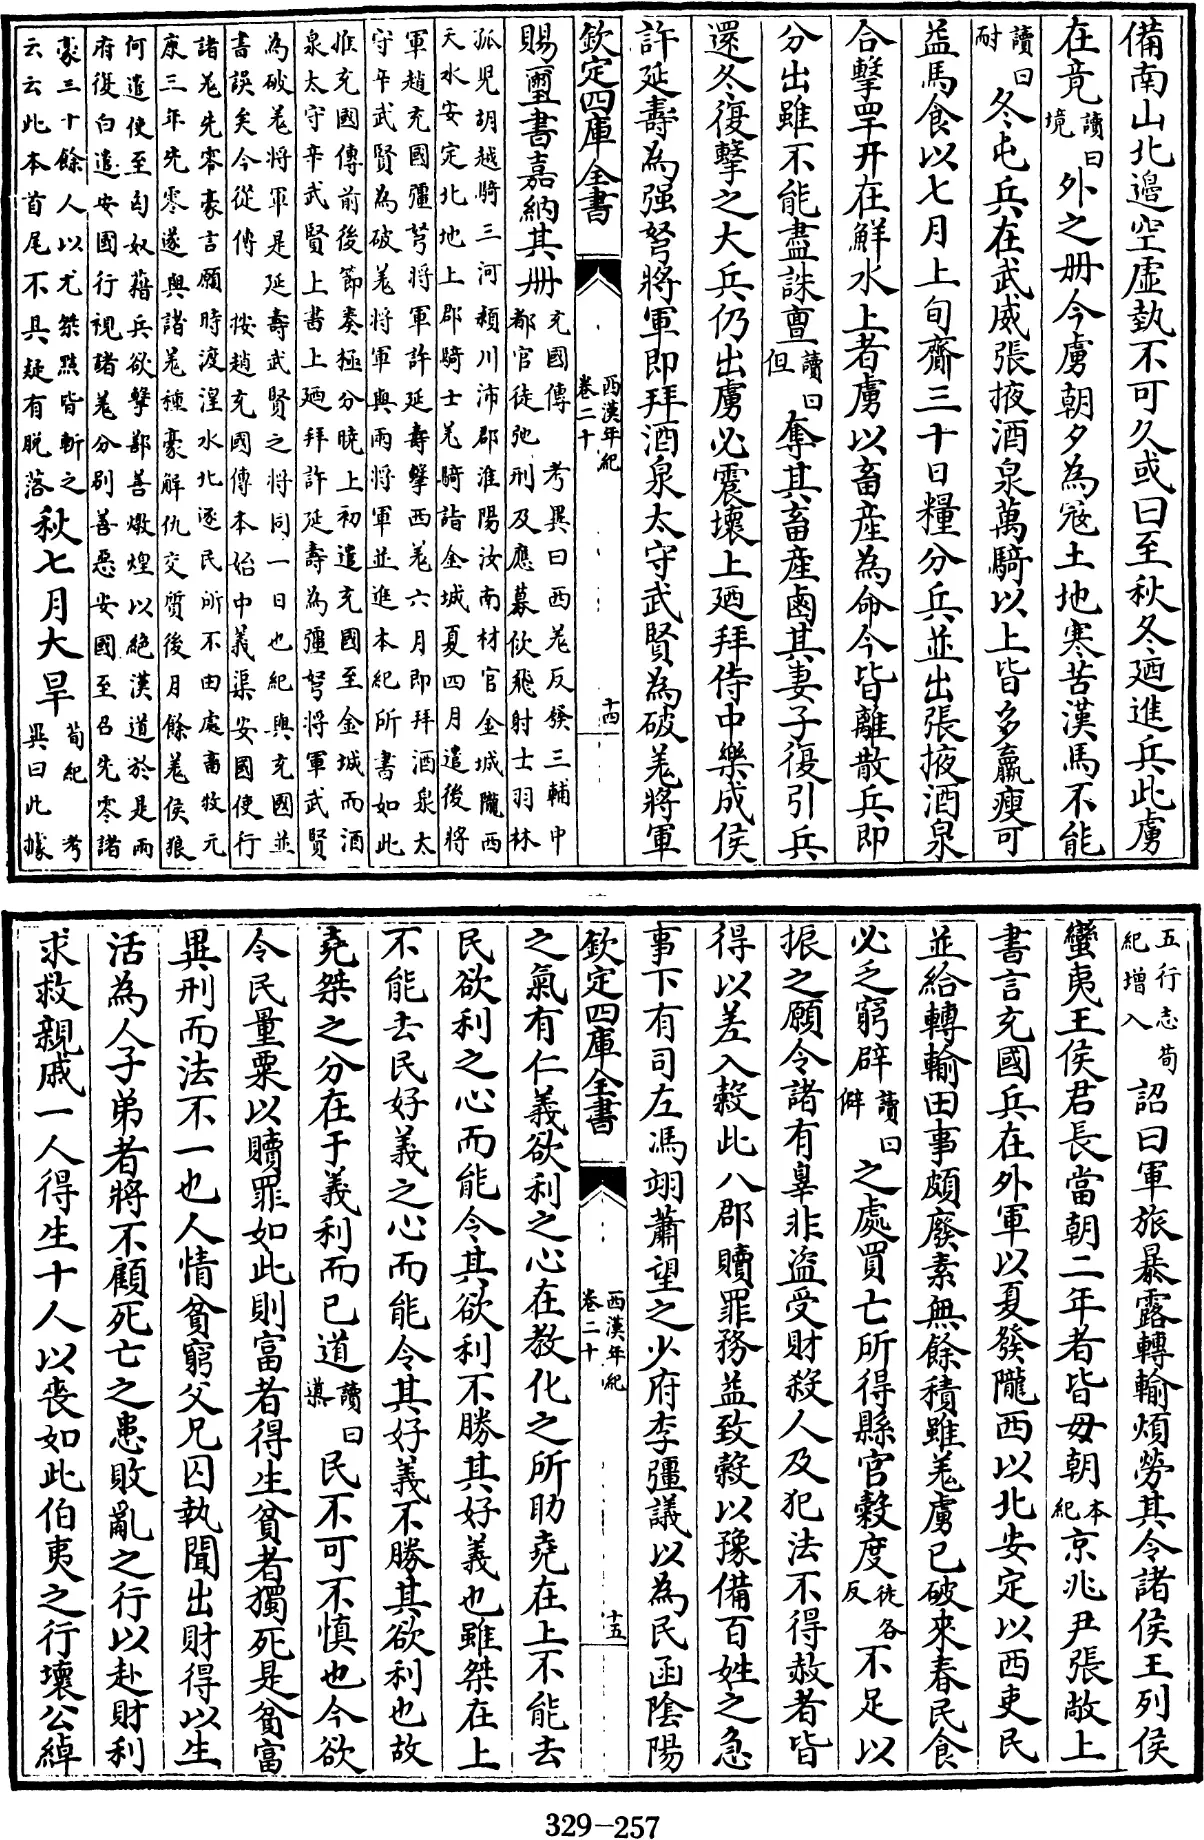 備南山北邊空虛執不可久或曰至秋冬廼進兵此虜
在竟讀曰境外之册今虜朝夕為寇土地寒苦漢馬不能
讀曰耐冬屯兵在武威張掖酒泉萬騎以上皆多羸瘦可
益馬食以七月上旬齎三十日糧分兵並出張掖酒泉
合擊䍐幵在鮮水上者虜以畜産為命今皆離散兵即
分出雖不能盡誅亶讀曰但奪其畜産鹵其妻子復引兵
還冬復擊之大兵仍出虜必震壞上廼拜侍中樂成侯
許延壽為强弩將軍即拜酒泉太守武賢為破羌將軍
欽定四庫全書
西漢年紀
卷二十
十四
賜璽書嘉納其册
充國傳 考異曰西羌反發三輔中
都官徒弛刑及應募佽飛射士羽林
孤兒胡越騎三河潁川沛郡淮陽汝南材官金城隴西
天水安定北地上郡騎士羌騎詣金城夏四月遣後將
軍趙充國彊弩將軍許延壽擊西羌六月即拜酒泉太
守辛武賢為破羌將軍與兩將軍並進本紀所書如此
惟充國傳前後節奏極分曉上初遣充國至金城而酒
泉太守辛武賢上書上廼拜許延壽為彊弩將軍武賢
為破羌將軍是延壽武賢之將同一日也紀與充國並
書誤矣今從傳 按趙充國傳本始中義渠安國使行
諸羌先零豪言願時渡湟水北逐民所不田處畜牧元
康三年先零遂與諸羌種豪解仇交質後月餘羌侯狼
何遣使至匈奴藉兵欲擊鄯善燉煌以絶漢道於是兩
府復白遣安國行視諸羌分别善惡安國至召先零諸
豪三十餘人以尤桀黠皆斬之
云云此本首尾不具疑有脱落
秋七月大旱
荀紀 考
異曰此據
五行志荀
紀增入
詔曰軍旅暴露轉輸煩勞其令諸侯王列侯
蠻夷王侯君長當朝二年者皆毋朝本紀京兆尹張敞上
書言充國兵在外軍以夏發隴西以北安定以西吏民
並給轉輸田事頗廢素無餘積雖羌虜已破來春民食
必乏窮辟讀曰僻之處買亡所得縣官穀度徒各反不足以
振之願令諸有辠非盜受財殺人及犯法不得赦者皆
得以差入穀此八郡贖罪務益致穀以豫備百姓之急
事下有司左馮翊蕭望之少府李彊議以為民函陰陽
欽定四庫全書
西漢年紀
卷二十
十五
之氣有仁義欲利之心在教化之所助堯在上不能去
民欲利之心而能令其欲利不勝其好義也雖桀在上
不能去民好義之心而能令其好義不勝其欲利也故
堯桀之分在于義利而已道讀曰導民不可不慎也今欲
令民量粟以贖罪如此則富者得生貧者獨死是貧富
異刑而法不一也人情貧窮父兄囚執聞出財得以生
活為人子弟者將不顧死亡之患敗亂之行以赴財利
求救親戚一人得生十人以喪如此伯夷之行壞公綽
329-257